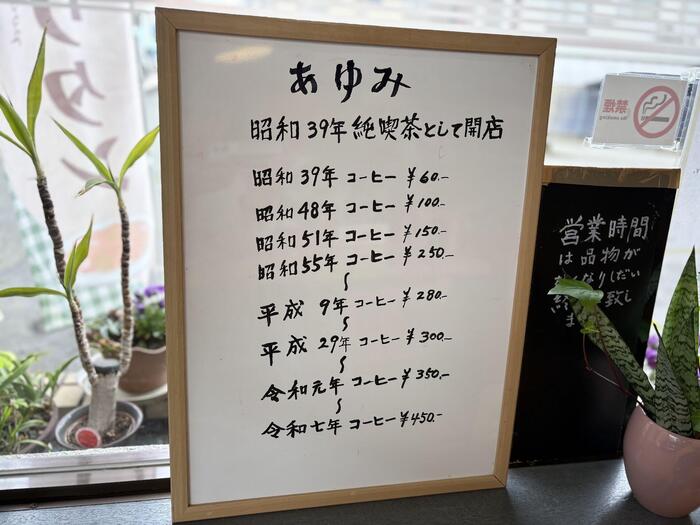 あゆみ
昭和39年純喫茶として開店
昭和39年 コーヒー ¥60.-
昭和48年 コーヒー ¥100.-
昭和51年 コーヒー ¥150.-
昭和55年 コーヒー ¥250.-
〜
平成 9年 コーヒー ¥280.-
〜
平成 29年 コーヒー ¥300.-
〜
令和元年 コーヒー ¥350.-
〜
令和七年 コーヒー ¥450.-
禁煙
No smoking
営業時間
は品物が
なくなりしだい
終了致し
ます